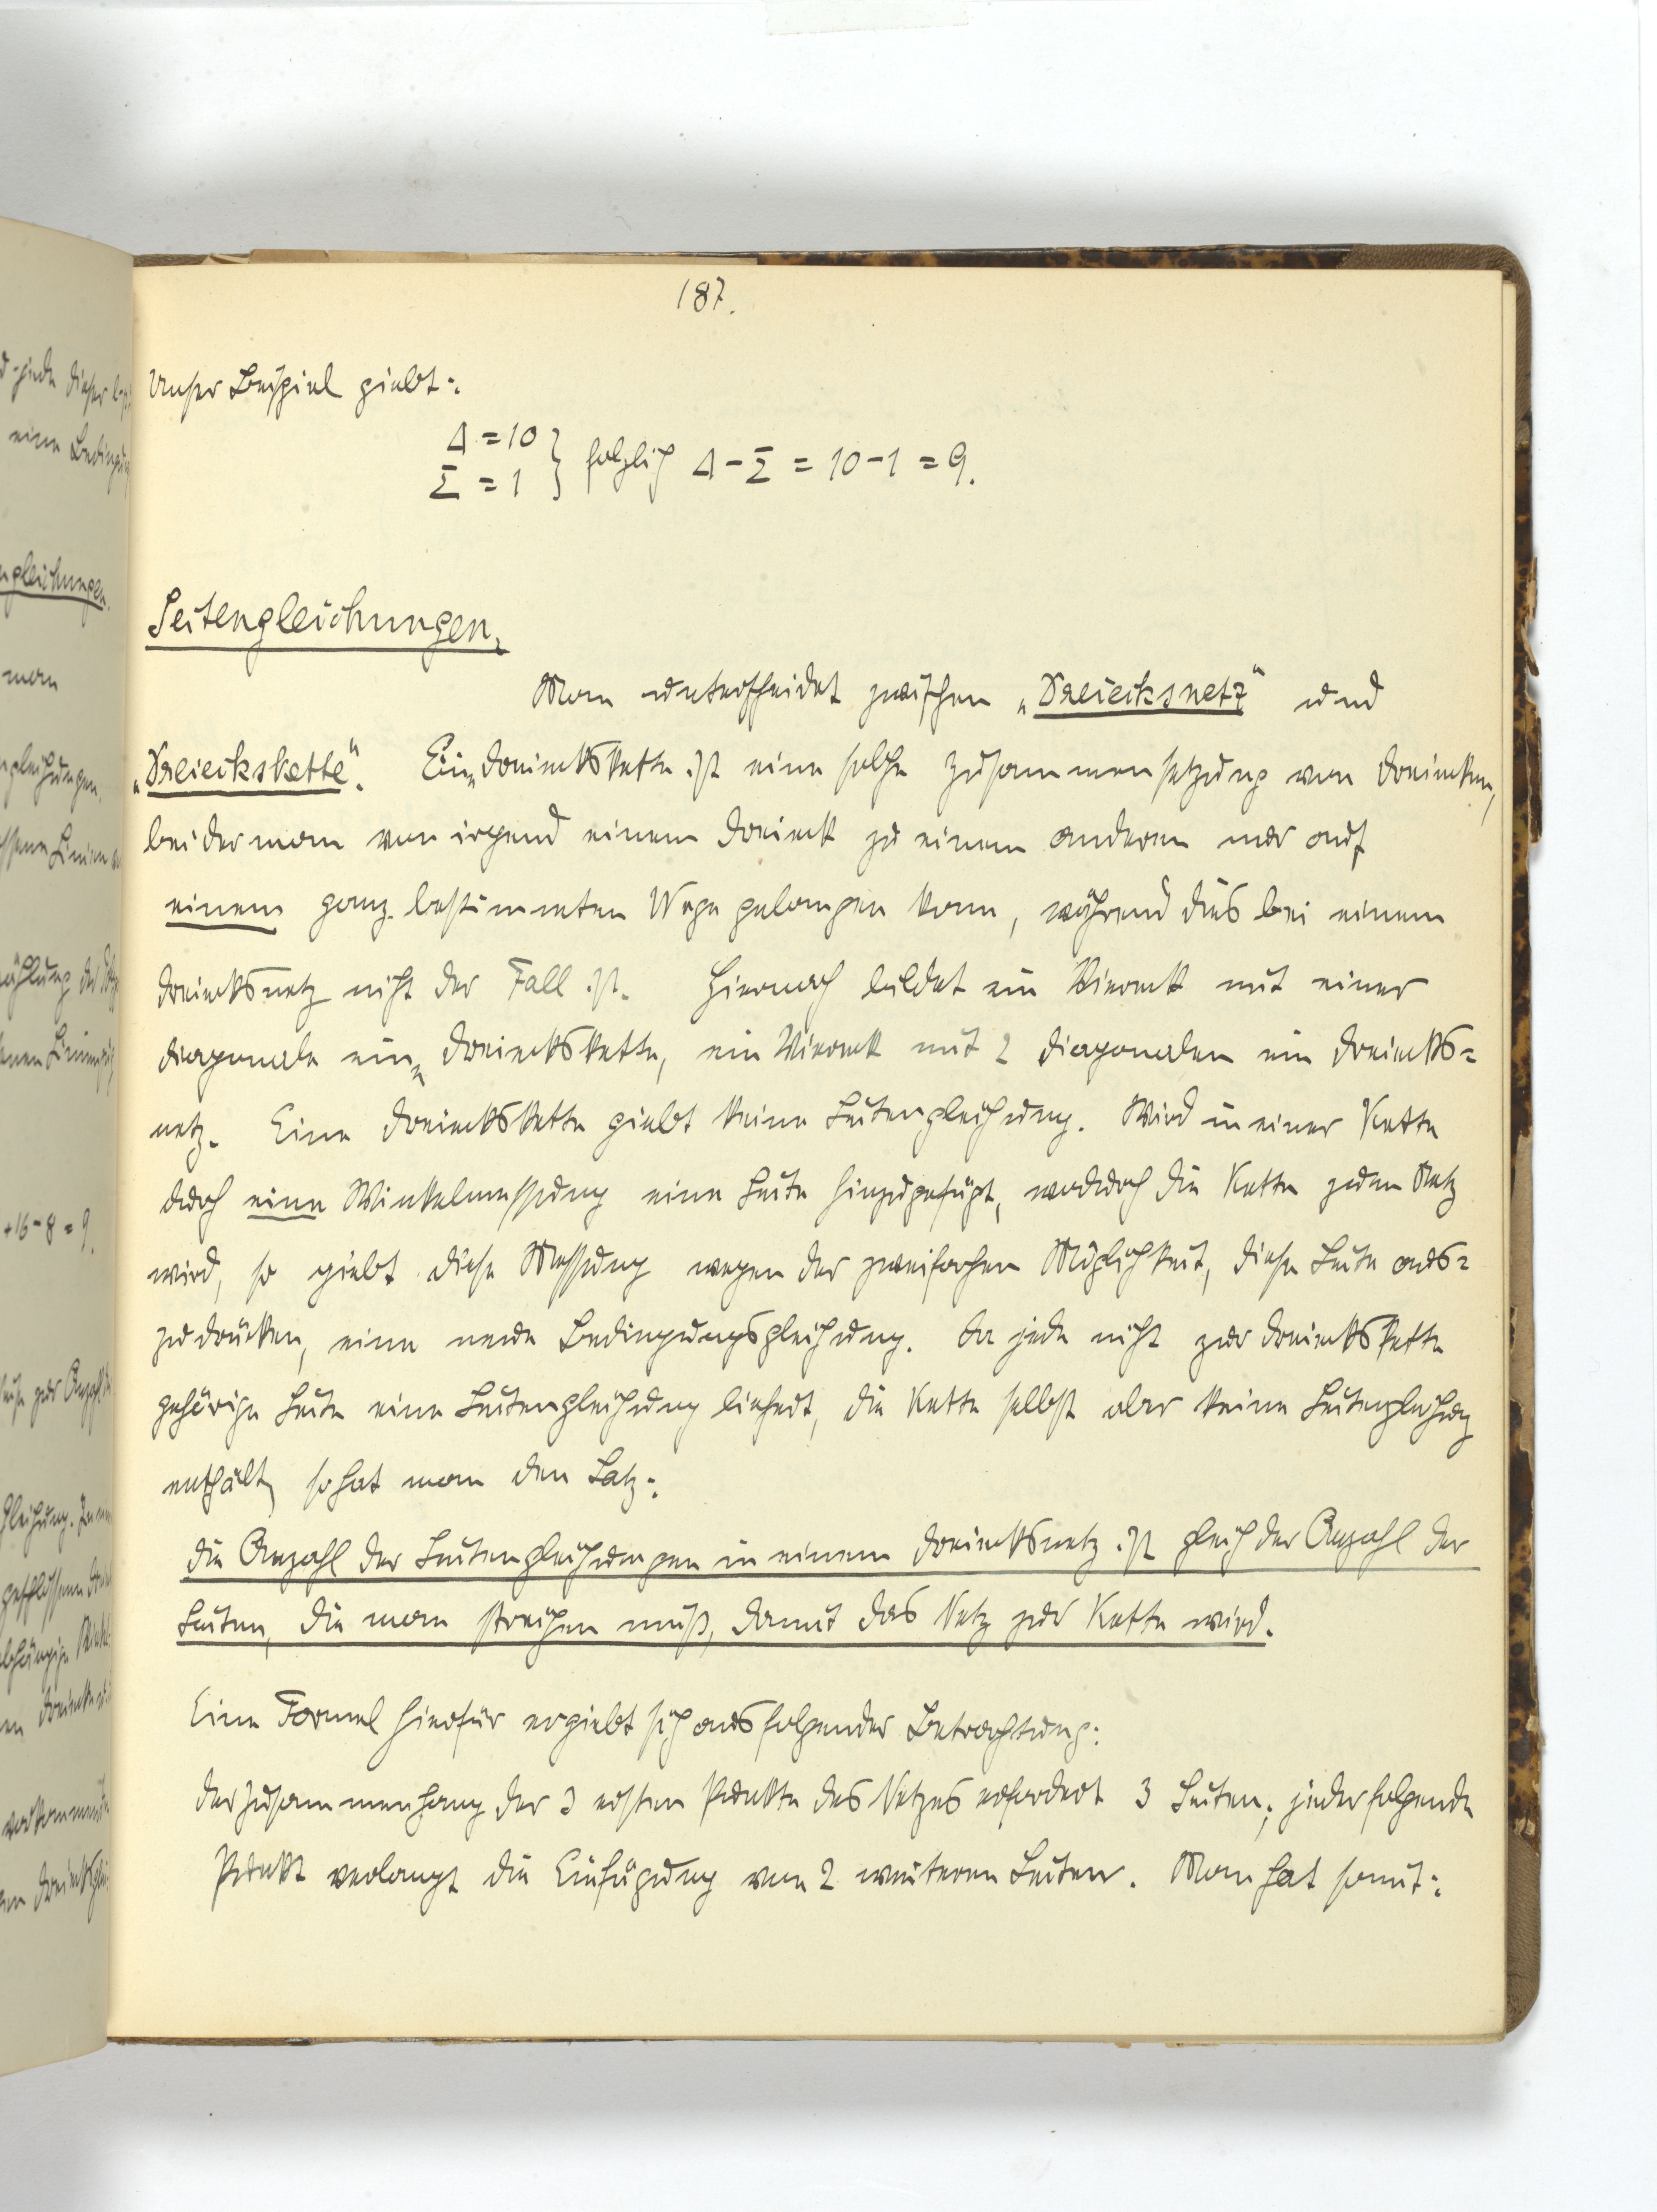 187.
Unser Beispiel giebt:
Δ = 10
Σ = 1 } folglich Δ - Σ = 10 - 1 = 9.
Seitengleichungen.
Man unterscheidet zwischen „Dreiecksnetz“ und
„Dreieckskette“. Eine Dreieckskette ist eine solche Zusammensetzung von Dreiecken,
bei der man von irgend einem Dreieck zu einem anderen nur auf
einem ganz bestimmten Wege gelangen kann, während dies bei einem
Dreiecksnetz nicht der Fall ist. Hiernach bildet ein Viereck mit einer
Diagonale eine Dreieckskette, ein Viereck mit 2 Diagonalen ein Dreiecks=
netz. Eine Dreieckskette giebt keine Seitengleichung. Wird in einer Kette
durch eine Winkelmessung eine Seite hinzugefügt, wodurch die Kette zum Netz
wird, so giebt diese Messung wegen der zweifachen Möglichkeit, diese Seite aus=
zudrücken, eine neue Bedingungsgleichung. Da jede nicht zur Dreieckskette
gehörige Seite eine Seitengleichung liefert, die Kette selbst aber keine Seitengleichung
enthält, so hat man den Satz:
Die Anzahl der Seitengleichungen in einem Dreiecksnetz ist gleich der Anzahl der
Seiten, die man streichen muß, damit das Netz zur Kette wird.
Eine Formel hierfür ergiebt sich aus folgender Betrachtung:
Der Zusammenhang der 3 ersten Punkte des Netzes erfordert 3 Seiten; jeder folgende
Punkt verlangt die Einfügung von 2 weiteren Seiten. Man hat somit: